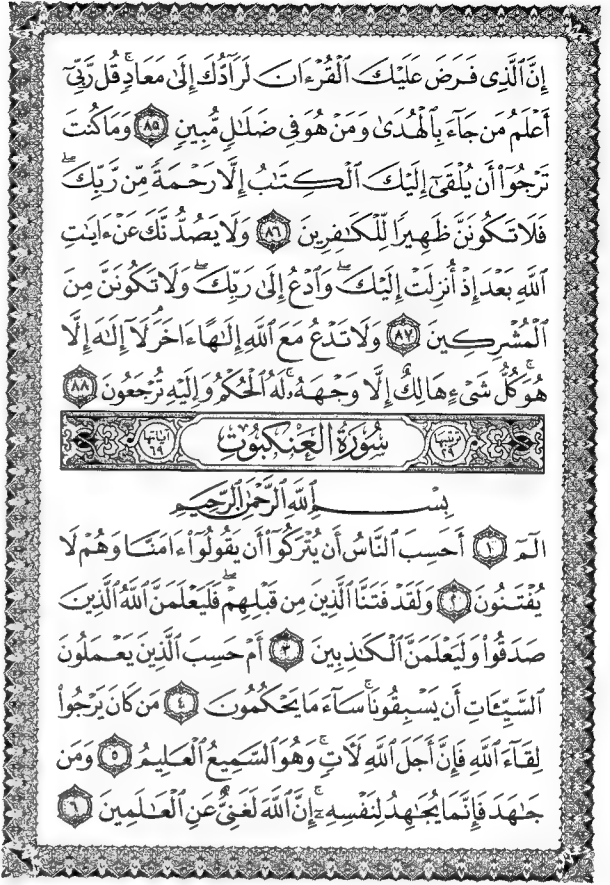 إِنَّ ٱلَّذِى فَرَضَ عَلَيْكَ ٱلْقُرْءَانَ لَرَآدُّكَ إِلَىٰ مَعَادٍ ۚ قُل رَّبِّىٓ
أَعْلَمُ مَن جَآءَ بِٱلْهُدَىٰ وَمَنْ هُوَ فِى ضَلَـٰلٍ مُّبِينٍ ٨٥ وَمَا كُنتَ
تَرْجُوٓا۟ أَن يُلْقَىٰٓ إِلَيْكَ ٱلْكِتَـٰبُ إِلَّا رَحْمَةً مِّن رَّبِّكَ ۖ
فَلَا تَكُونَنَّ ظَهِيرًا لِّلْكَـٰفِرِينَ ٨٦ وَلَا يَصُدُّنَّكَ عَنْ ءَايَـٰتِ
ٱللَّهِ بَعْدَ إِذْ أُنزِلَتْ إِلَيْكَ ۖ وَٱدْعُ إِلَىٰ رَبِّكَ ۖ وَلَا تَكُونَنَّ مِنَ
ٱلْمُشْرِكِينَ ٨٧ وَلَا تَدْعُ مَعَ ٱللَّهِ إِلَـٰهًا ءَاخَرَ ۘ لَآ إِلَـٰهَ إِلَّا
هُوَ ۚ كُلُّ شَىْءٍ هَالِكٌ إِلَّا وَجْهَهُۥ ۚ لَهُ ٱلْحُكْمُ وَإِلَيْهِ تُرْجَعُونَ ٨٨
ترتيبها ٢٩ سُورَةُ العَنكَبُوت آياتها ٦٩
بِسْمِ ٱللَّهِ ٱلرَّحْمَـٰنِ ٱلرَّحِيمِ
الٓمٓ ١ أَحَسِبَ ٱلنَّاسُ أَن يُتْرَكُوٓا۟ أَن يَقُولُوٓا۟ ءَامَنَّا وَهُمْ لَا
يُفْتَنُونَ ٢ وَلَقَدْ فَتَنَّا ٱلَّذِينَ مِن قَبْلِهِمْ ۖ فَلَيَعْلَمَنَّ ٱللَّهُ ٱلَّذِينَ
صَدَقُوا۟ وَلَيَعْلَمَنَّ ٱلْكَـٰذِبِينَ ٣ أَمْ حَسِبَ ٱلَّذِينَ يَعْمَلُونَ
ٱلسَّيِّـَٔاتِ أَن يَسْبِقُونَا ۚ سَآءَ مَا يَحْكُمُونَ ٤ مَن كَانَ يَرْجُوا۟
لِقَآءَ ٱللَّهِ فَإِنَّ أَجَلَ ٱللَّهِ لَـَٔاتٍ ۚ وَهُوَ ٱلسَّمِيعُ ٱلْعَلِيمُ ٥ وَمَن
جَـٰهَدَ فَإِنَّمَا يُجَـٰهِدُ لِنَفْسِهِۦٓ ۚ إِنَّ ٱللَّهَ لَغَنِىٌّ عَنِ ٱلْعَـٰلَمِينَ ٦